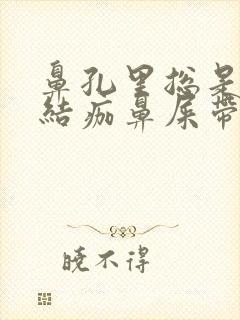 鼻孔里总是
结痂鼻屎带
晓不得